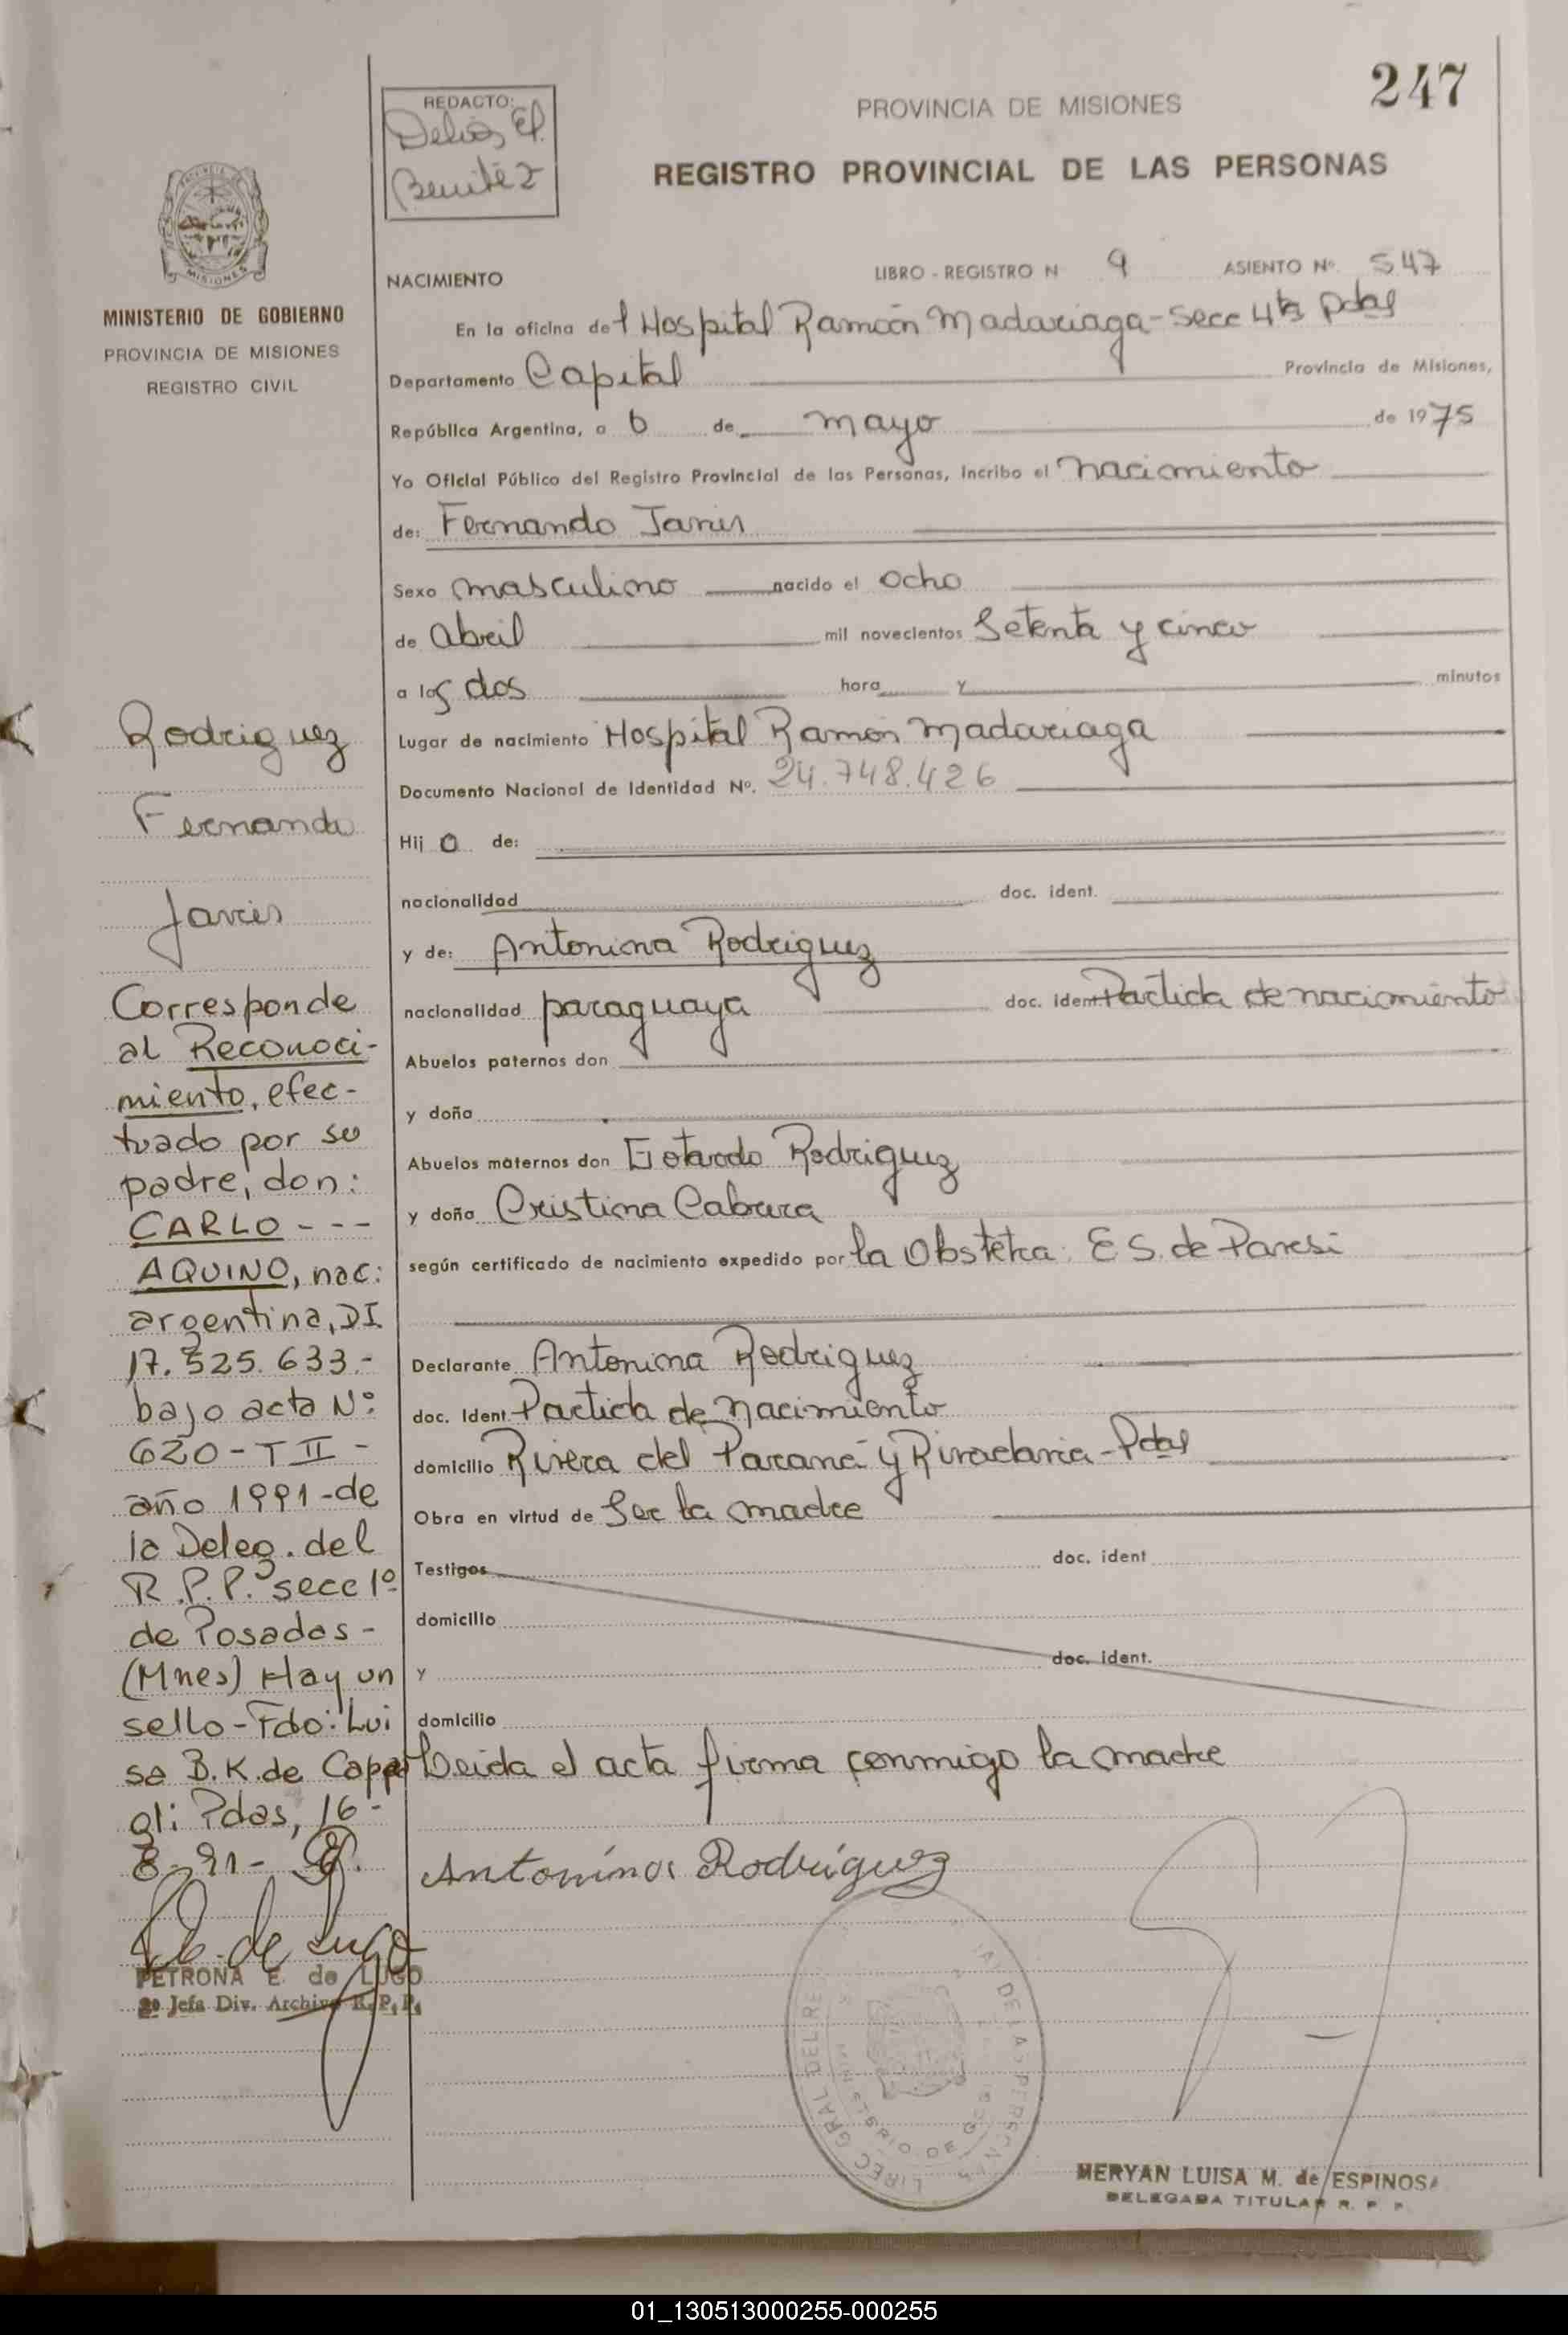 247
REDACTO:
Benitez
PROVINCIA DE MISIONES
REGISTRO PROVINCIAL DE LAS PERSONAS
MISIONES
MINISTERIO DE GOBIERNO
PROVINCIA DE MISIONES
REGISTRO CIVIL
NACIMIENTO LIBRO - REGISTRO N 9 ASIENTO Nº. 547
En la oficina del Hospital Ramón Madariaga - Secc 4ta Pdas
Departamento Capital Provincia de Misiones,
República Argentina, a 6 de mayo de 1975
Yo Oficial Público del Registro Provincial de las Personas, incribo el nacimiento
de: Fernando Javier
Sexo masculino nacido el ocho
de abril mil novecientos Setenta y cinco
a las dos hora y minutos
Lugar de nacimiento Hospital Ramón Madariaga
Documento Nacional de Identidad Nº. 24.748.426
Hij o de:
nacionalidad doc. ident.
y de: Antonina Rodriguez
nacionalidad paraguaya doc. ident Partida de nacimiento
Abuelos paternos don
y doña
Abuelos maternos don Gotardo Rodriguez
y doña Cristina Cabrera
según certificado de nacimiento expedido por la Obstetra: E S. de Paresi
Declarante Antonina Rodriguez
doc. Ident. Partida de nacimiento
domicilio Rivera del Paraná y Rivadavia - Pdas
Obra en virtud de Ser la madre
Testigos doc. ident
domicilio
y doc. ident.
domicilio
Leida el acta firma conmigo la madre
Antonina Rodriguez
MERYAN LUISA M. de ESPINOSA
DELEGADA TITULAR R. P. P.
Rodriguez
Fernando
Javier
Corresponde
al Reconoci-
miento, efec-
tuado por su
padre, don:
CARLO - - -
AQUINO, nac:
argentina, DI
17.525.633.-
bajo acta Nº:
620 - T II -
año 1991 - de
la Deleg. del
R.P.P. secc 1º
de Posadas -
(Mnes) Hay un
sello - Fdo: Lui
sa B.K. de Coppa
gli Pdas, 16 -
8-91-
de Lugo
PETRONA E. de LUGO
2º Jefa Div. Archivo R. P. P.
01_130513000255-000255